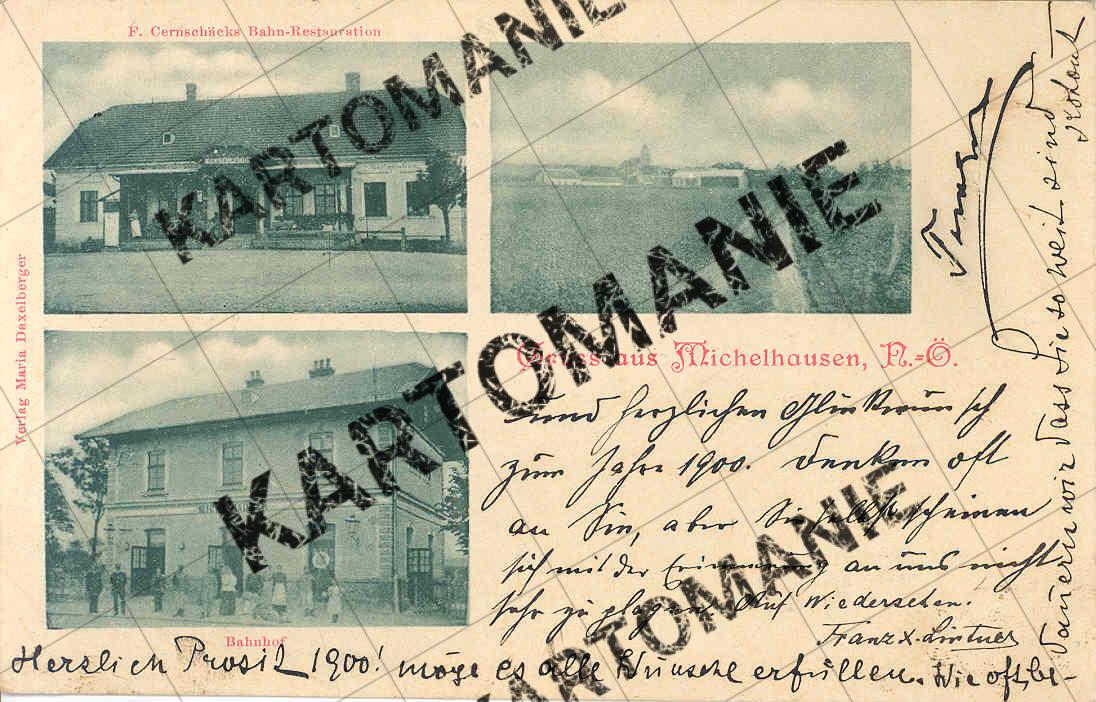 F. Cernschäcks Bahn-Restauration
Verlag Maria Daxelberger
Gruss aus Michelhausen, N.-Ö.
und herzlichen Glückwunsch
zum Jahre 1900. Denken oft
an Sie, aber Sie selbst scheinen
sich mit der Erinnerung an uns nicht
sehr zu plagen. Auf Wiedersehen.
Franz X. Lintner
Bahnhof
Herzlich Prosit 1900! möge es alle Wünsche erfüllen. Wie oft be-
dauern wir dass Sie so weit sind
KARTOMANIE
KARTOMANIE
KARTOMANIE
KARTOMANIE
KARTOMANIE